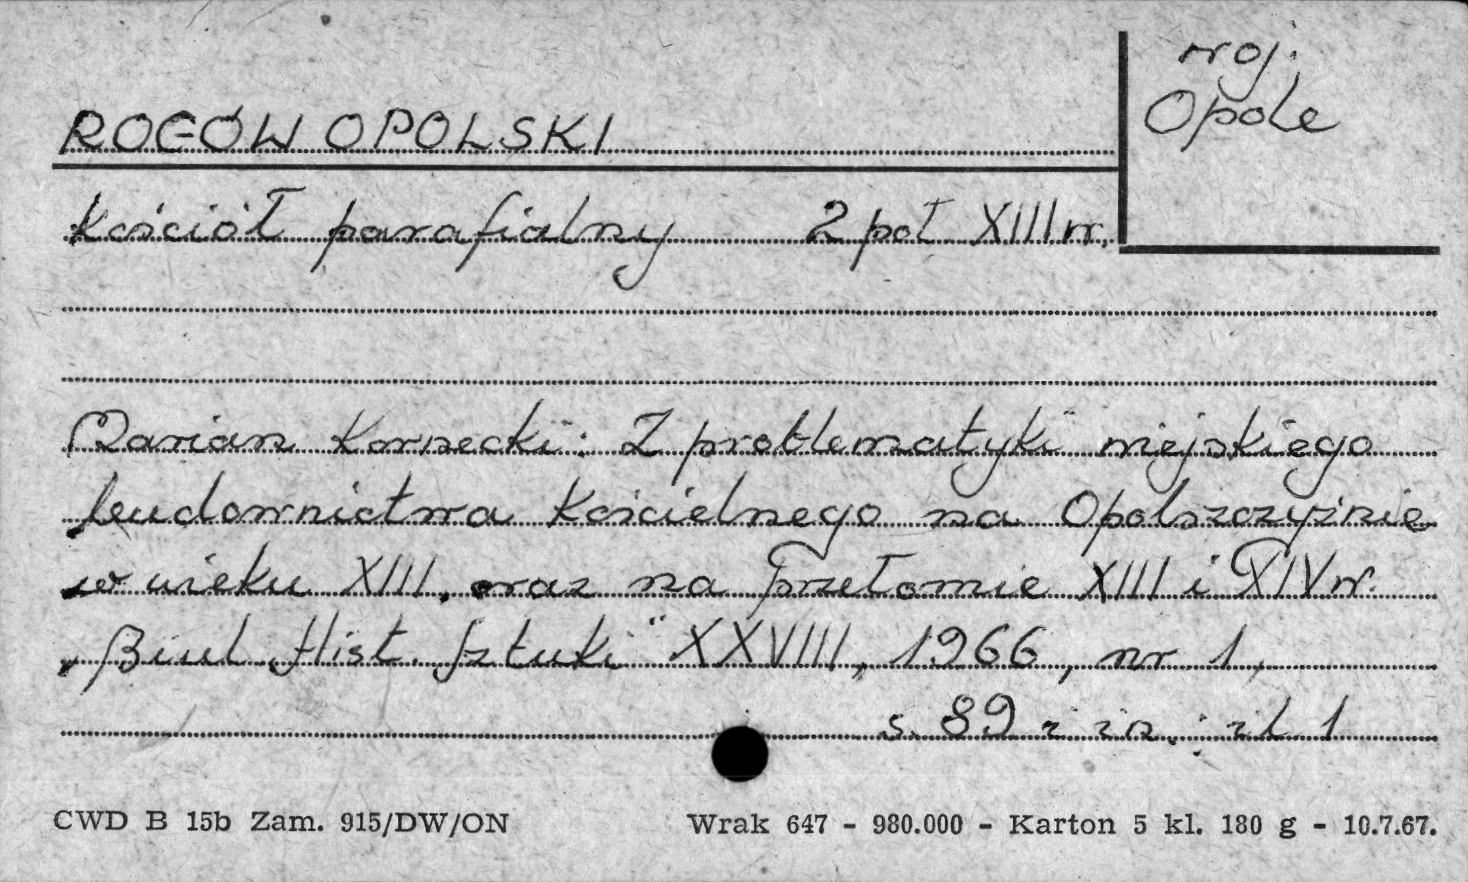 woj.
Opole
ROGÓW OPOLSKI
Kościół parafialny 2 poł XIII w.
Marian Kornecki: Z problematyki miejskiego
budownictwa kościelnego na Opolszczyźnie
w wieku XIII, oraz na przełomie XIII i XIV w.
„Biul. Hist. Sztuki" XXVIII, 1966, nr 1,
s. 89 i in.; il 1
CWD B 15b Zam. 915/DW/ON Wrak 647 - 980.000 - Karton 5 kl. 180 g - 10.7.67.